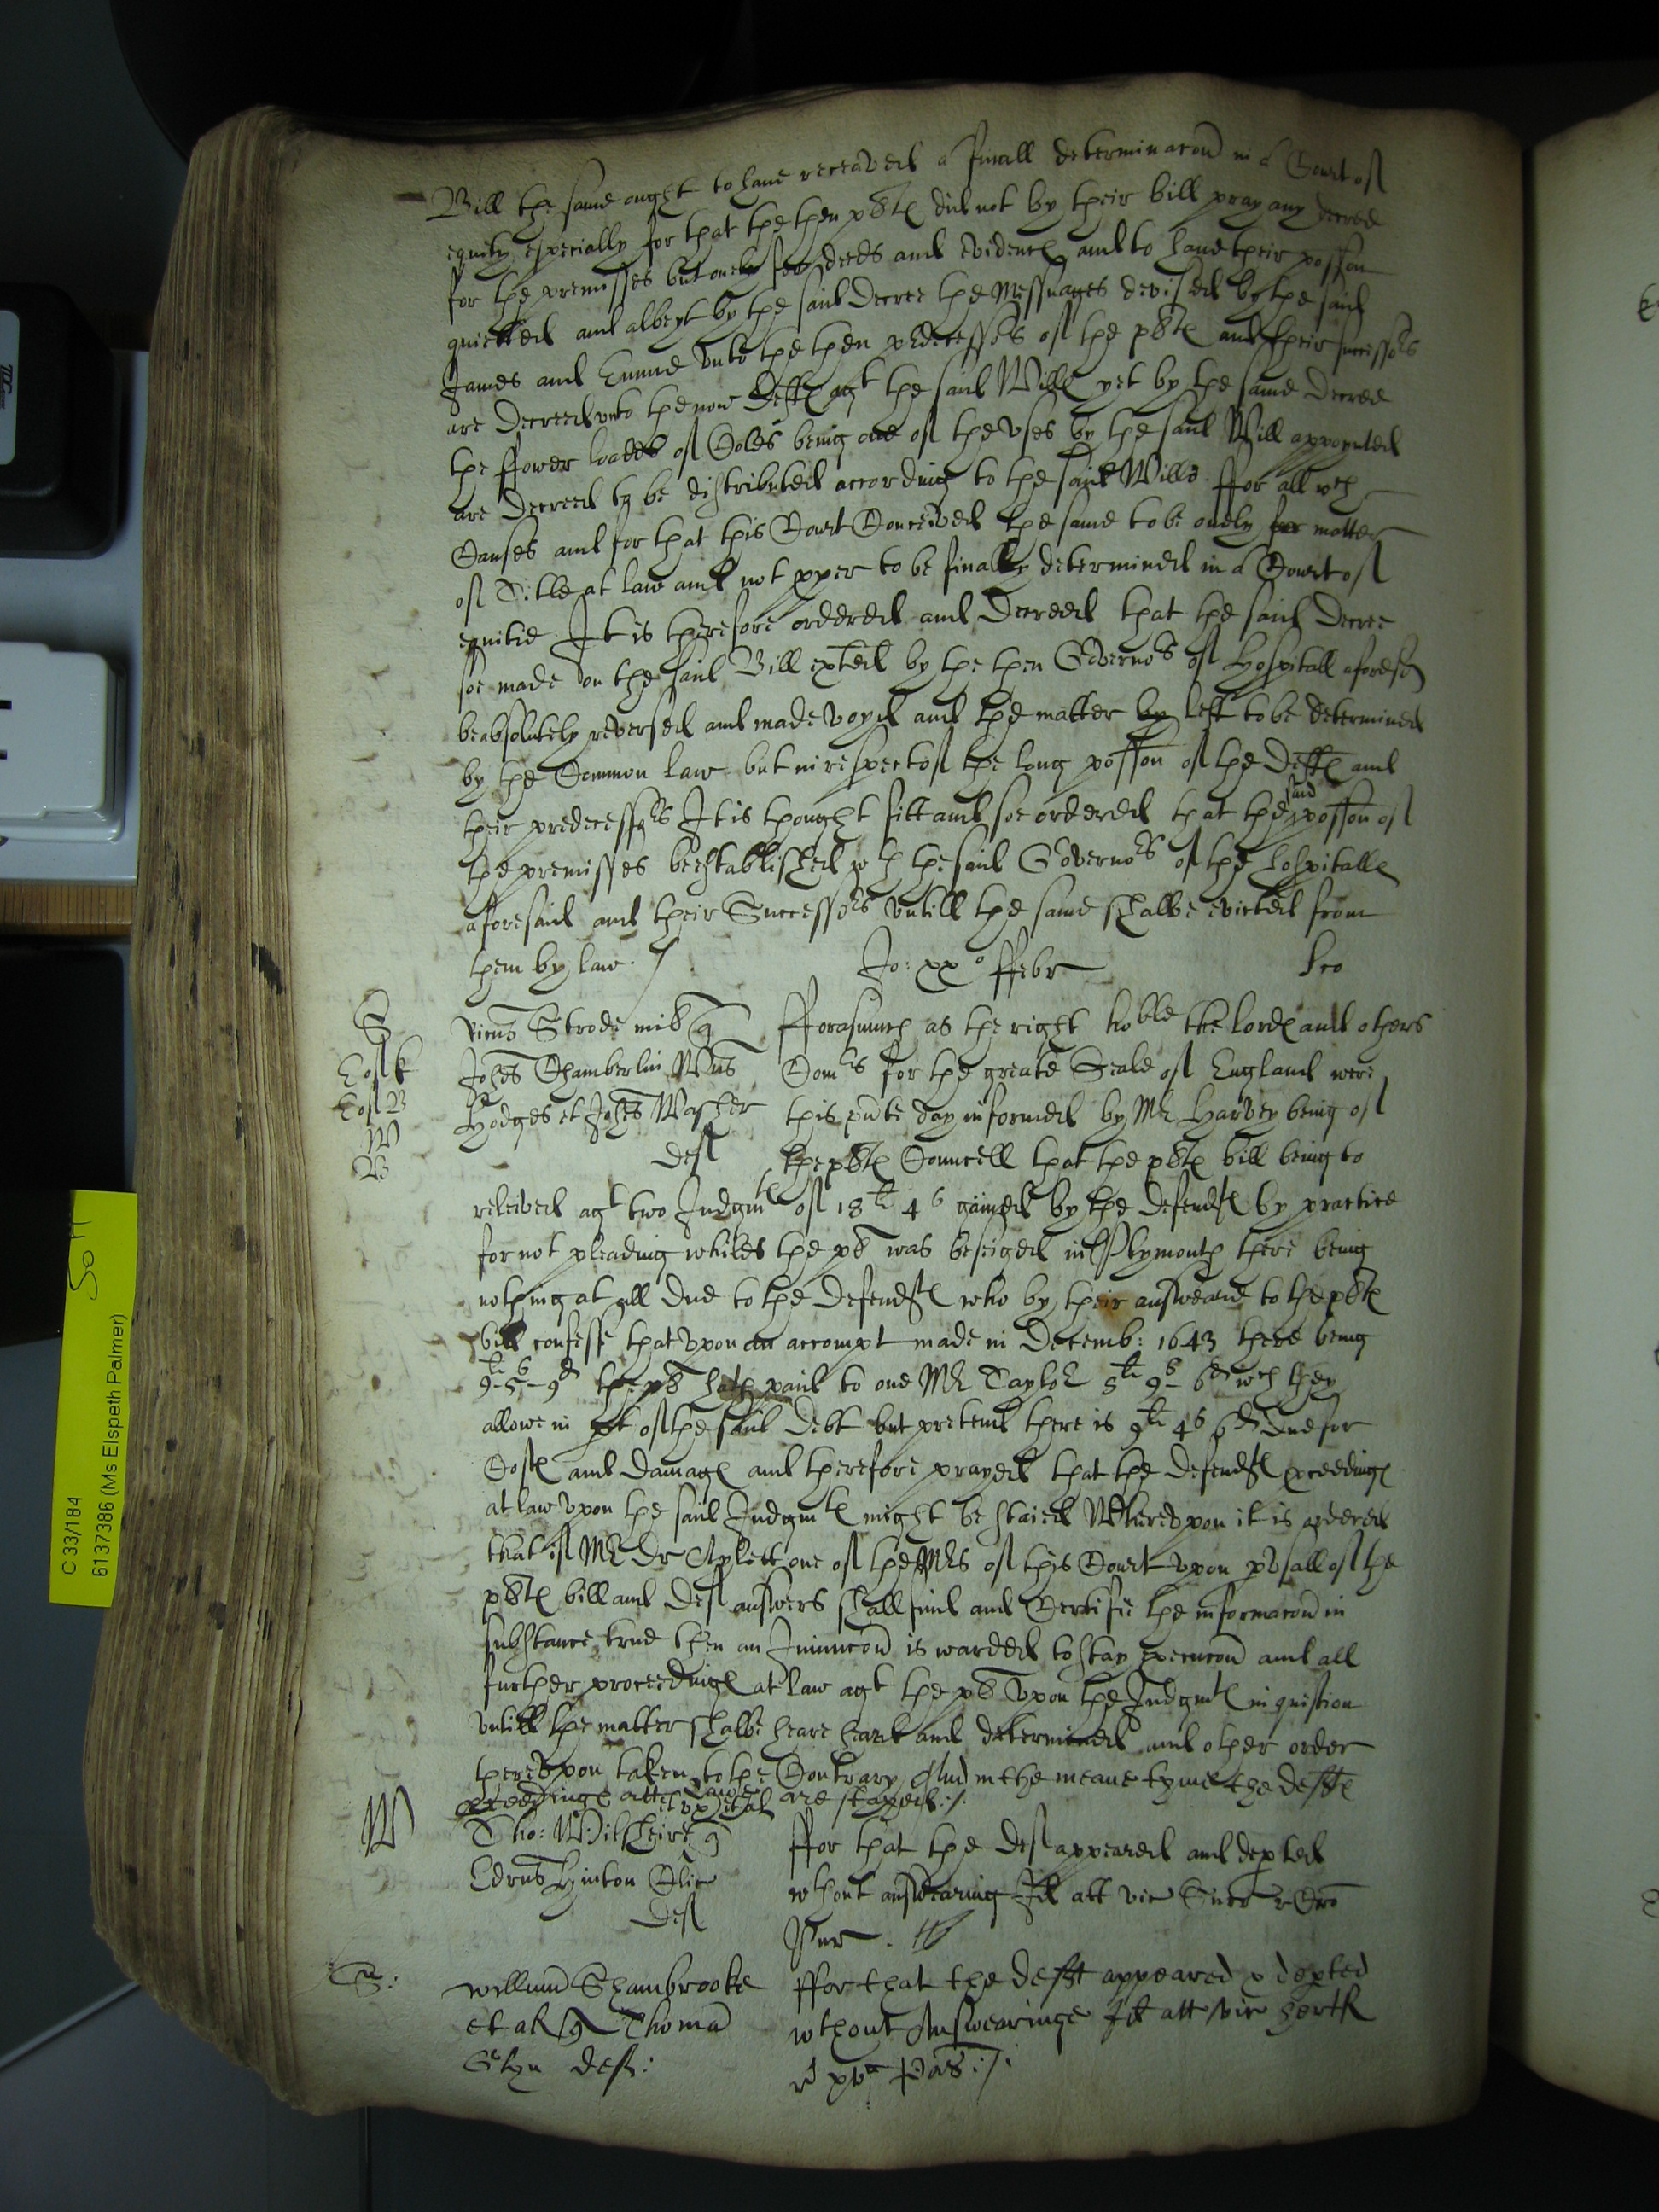 Bill the same ought to have receaved a finall determinacon in a Court of
equity especially for that the then plts did not by their bill pray any decree
for the premisses but onely for deeds and evidences and to have their posson
quietted and albeyt by the said Decree the Messuages devised by the said
James and Emme unto the then predecessors of the plts and their successors
are decreed unto the now Defts agt the said Will yet by the same decree
the ffower loades of Coles being one of the uses by the said Will appoynted
are decreed to be distributed according to the said Will. ffor all wch
Causes and for that this Court Conceived the same to be onely for matter
of Title at law and not pper to be finally determined in a Court of
equitie It is therefore ordered and Decreed that the said Decree
soe made on the said Bill exted by the then Governors of Hospitall aforesd
be absolutely reversed and made voyd and the matter by left to be determined
by the Common law but in respect of the long posson of the Defts and
their predecessors It is thought fitt and soe ordered that the said posson of
the premisses bee established wth the said Governors of the hospitall
aforesaid and their Successors untill the same shalbe evicted from
them by law.
Jo: xxo ffebr
Wms Strode mil q
Johes Chamberlin Wms
Hodges et Johes Washer
def
fforasmuch as the right hoble the lords and others
Comrs for the greate Seale of England were
this pnte day informed by Mr Harvey being of
the plts Councell that the plts bill being to
releived agt two Judgmts of 18li 4s gained by the defendts by practice
for not pleading whiles the pl was beseiged in Plymouth there being
nothing at all due to the Defendts who by their answeare to the plts
bill confesse that upon an accompt made in Decemb: 1643 there being
9li-5s-9d the pl hath paid to one Mr Taylor 5li 9s 6d wch they
allowe in pt of the said debt but pretend there is 9li 4s 6d due for
Costs and Damages and therefore prayed that the defendts pceedings
at law upon the said Judgmts might be staied Whereupon it is ordered
that if Mr Dr Aylett one of the Mrs of this Court upon pusall of the
plts bill and def answers shall find and Certifie the informacon in
substance true then an Iniunccon is warded to stay execucon and all
further proceedings at law agt the pl upon the Judgmts in question
untill the matter shalbe heare heard and determined and other order
thereupon taken to the Contrary And in the meane tyme the defts
pceedings att Lawe are stayed:/.
Tho: Wilsheire q
Edrus Hinton Clic
def
ffor that the def appeared and depted
wthout answearing Id att vic
Pur.
Willum Shambrooke
et al q Thoma
Glyn def:
ffor that the deft appeared & depted
wthout Answearinge Id att vic hertf
r xva Pas:/.
C 33/184
61373786 (Ms Elspeth Palmer)